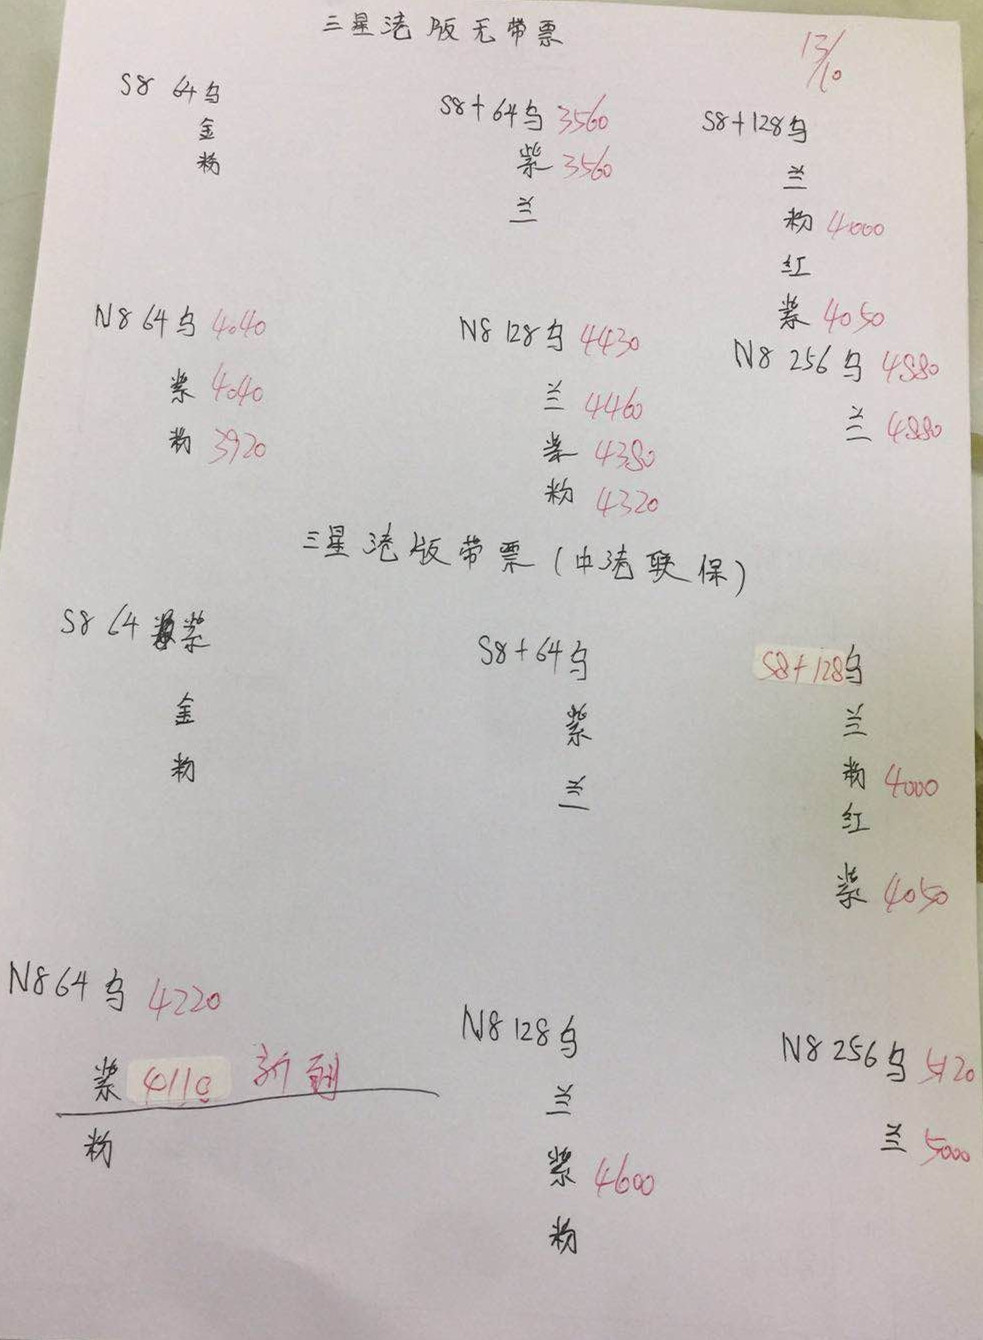 三星法版无带票
13/10
S8 64乌
金
粉
S8+64乌 3560
紫 3560
兰
S8+128乌
兰
粉 4000
红
紫 4050
N8 64乌 4040
紫 4040
粉 3920
N8 128乌 4430
兰 4460
紫 4380
粉 4320
N8 256乌 4880
兰 4880
三星法版带票(中法联保)
S8 64 紫
金
粉
S8+64乌
紫
兰
S8+128乌
兰
粉 4000
红
紫 4050
N8 64乌 4220
紫 4110 新到
粉
N8 128乌
兰
紫 4600
粉
N8 256乌 5120
兰 5000